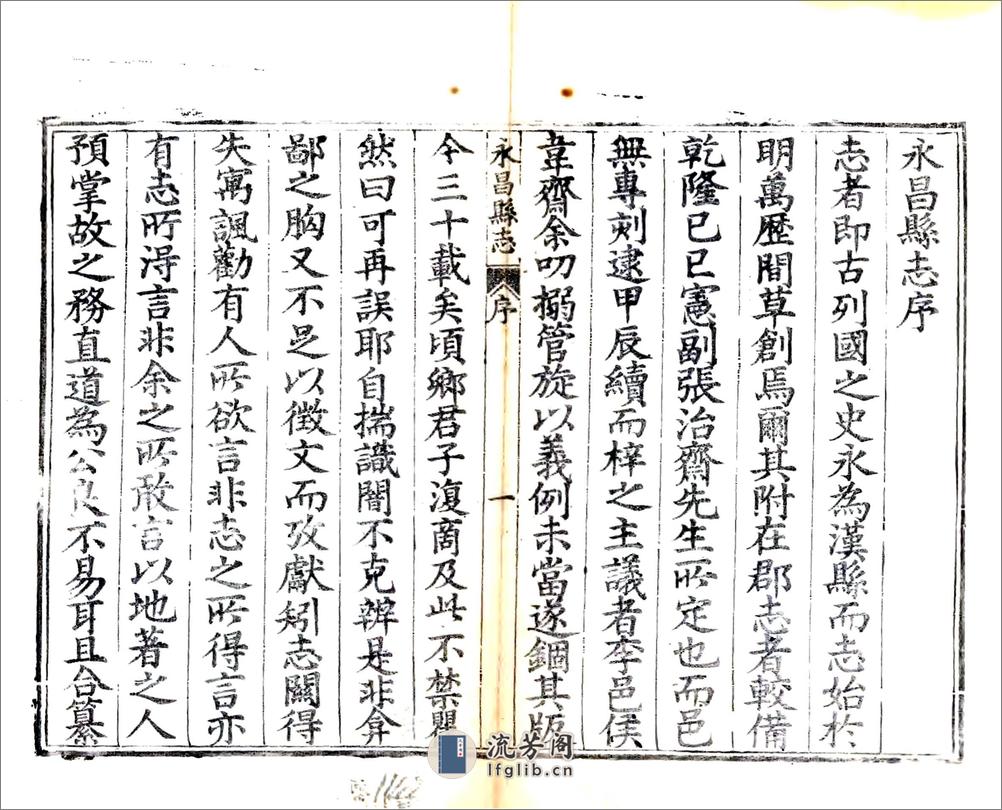 永昌縣志序
志者即古列國之史永為漢縣而志始於
明萬歷間草創焉爾其附在郡志者較備
乾隆已巳憲副張治齋先生所定也而邑
無專刻逮甲辰續而梓之主議者李邑侯
葦齋余叨搦管旋以義例未當遂錮其版
永昌縣志
序
一
今三十載矣頃鄉君子復商及此不禁瞿
然曰可再誤耶自揣識闇不克辨是非弇
鄙之胸又不足以徵文而攷獻矧志關得
失寓諷勸有人所欲言非志之所得言亦
有志所得言非余之所敢言以地著之人
預掌故之務直道為公良不易耳且合纂
流芳阁
lfglib.cn